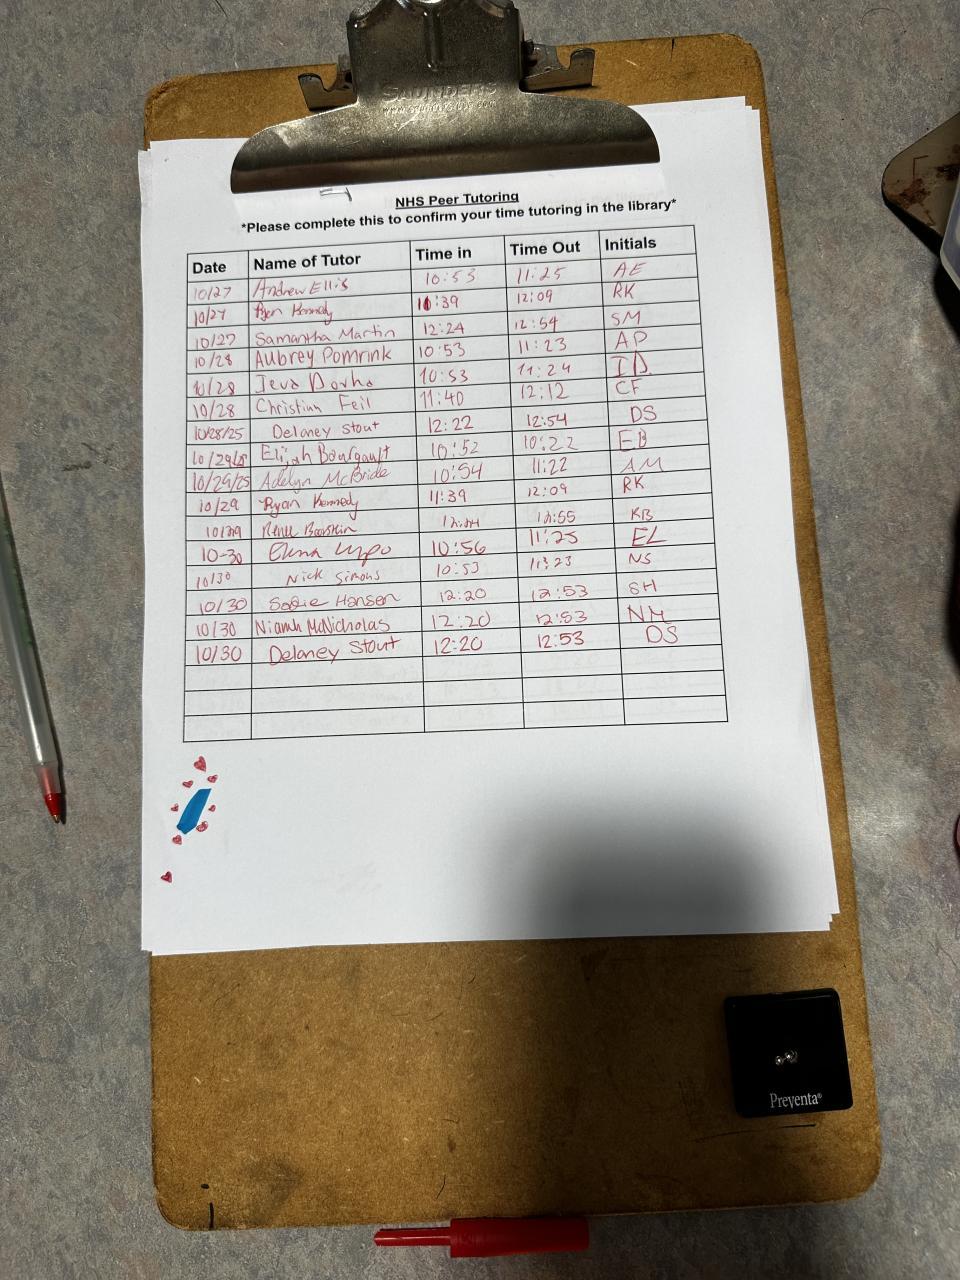 SAUNDERS
NHS Peer Tutoring
*Please complete this to confirm your time tutoring in the library*
Date Name of Tutor Time in Time Out Initials
10/27 Andrew Ellis 10:53 11:25 AE
10/27 Ryan Kennedy 11:39 12:09 RK
10/27 Samantha Martin 12:24 12:54 SM
10/28 Aubrey Pomrink 10:53 11:23 AP
10/28 Ieva 10:53 11:24 ID
10/28 Christian Feil 11:40 12:12 CF
10/28/25 Delaney Stout 12:22 12:54 DS
10/29/25 Elijah Bourgault 10:52 10:22 EB
10/29/25 Adelyn McBride 10:54 11:22 AM
10/29 Ryan Kennedy 11:39 12:09 RK
10/29 12:55
10-30 Elena 10:56 11:25 EL
10/30 Nick Simons 10:53 11:23 NS
10/30 Sadie Hansen 12:20 12:53 SH
10/30 Niamh McNicholas 12:20 12:53 NM
10/30 Delaney Stout 12:20 12:53 DS
Preventa®